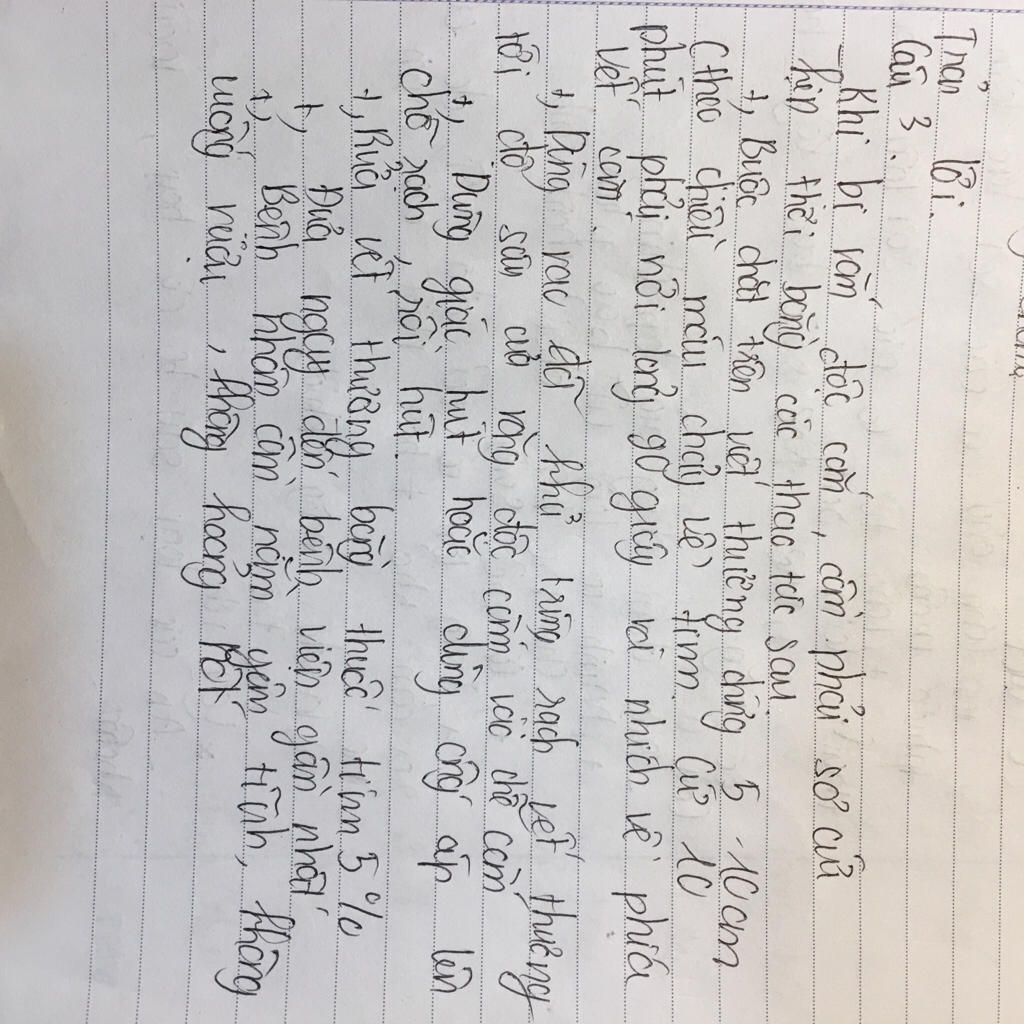 Trả lời.
Câu 3.
- Khi bị rắn độc cắn, cần phải sơ cứu
kịp thời bằng các thao tác sau
+, Buộc chặt trên vết thương chừng 5-10cm
(theo chiều máu chảy về tim cứ 10
phút phải nới lỏng 90 giây và nhích về phía
vết cắn.
+, Dùng dao đã khử trùng rạch vết thương
tới độ sâu của răng độc cắm vào chỗ cắn
+, Dùng giác hút hoặc dùng ống áp lên
chỗ rạch, rồi hút.
+, Rửa vết thương bằng thuốc tím 5%
+, Đưa ngay đến bệnh viện gần nhất
+, Bệnh nhân cần nằm yên tĩnh, không
uống rượu, không hoảng hốt